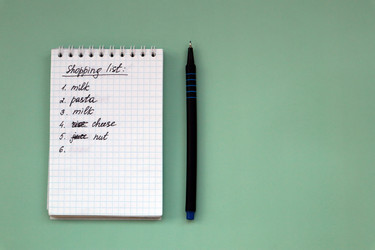 Shopping list:
1. milk
2. pasta
3. milk
4. cheese
5. nut
6.